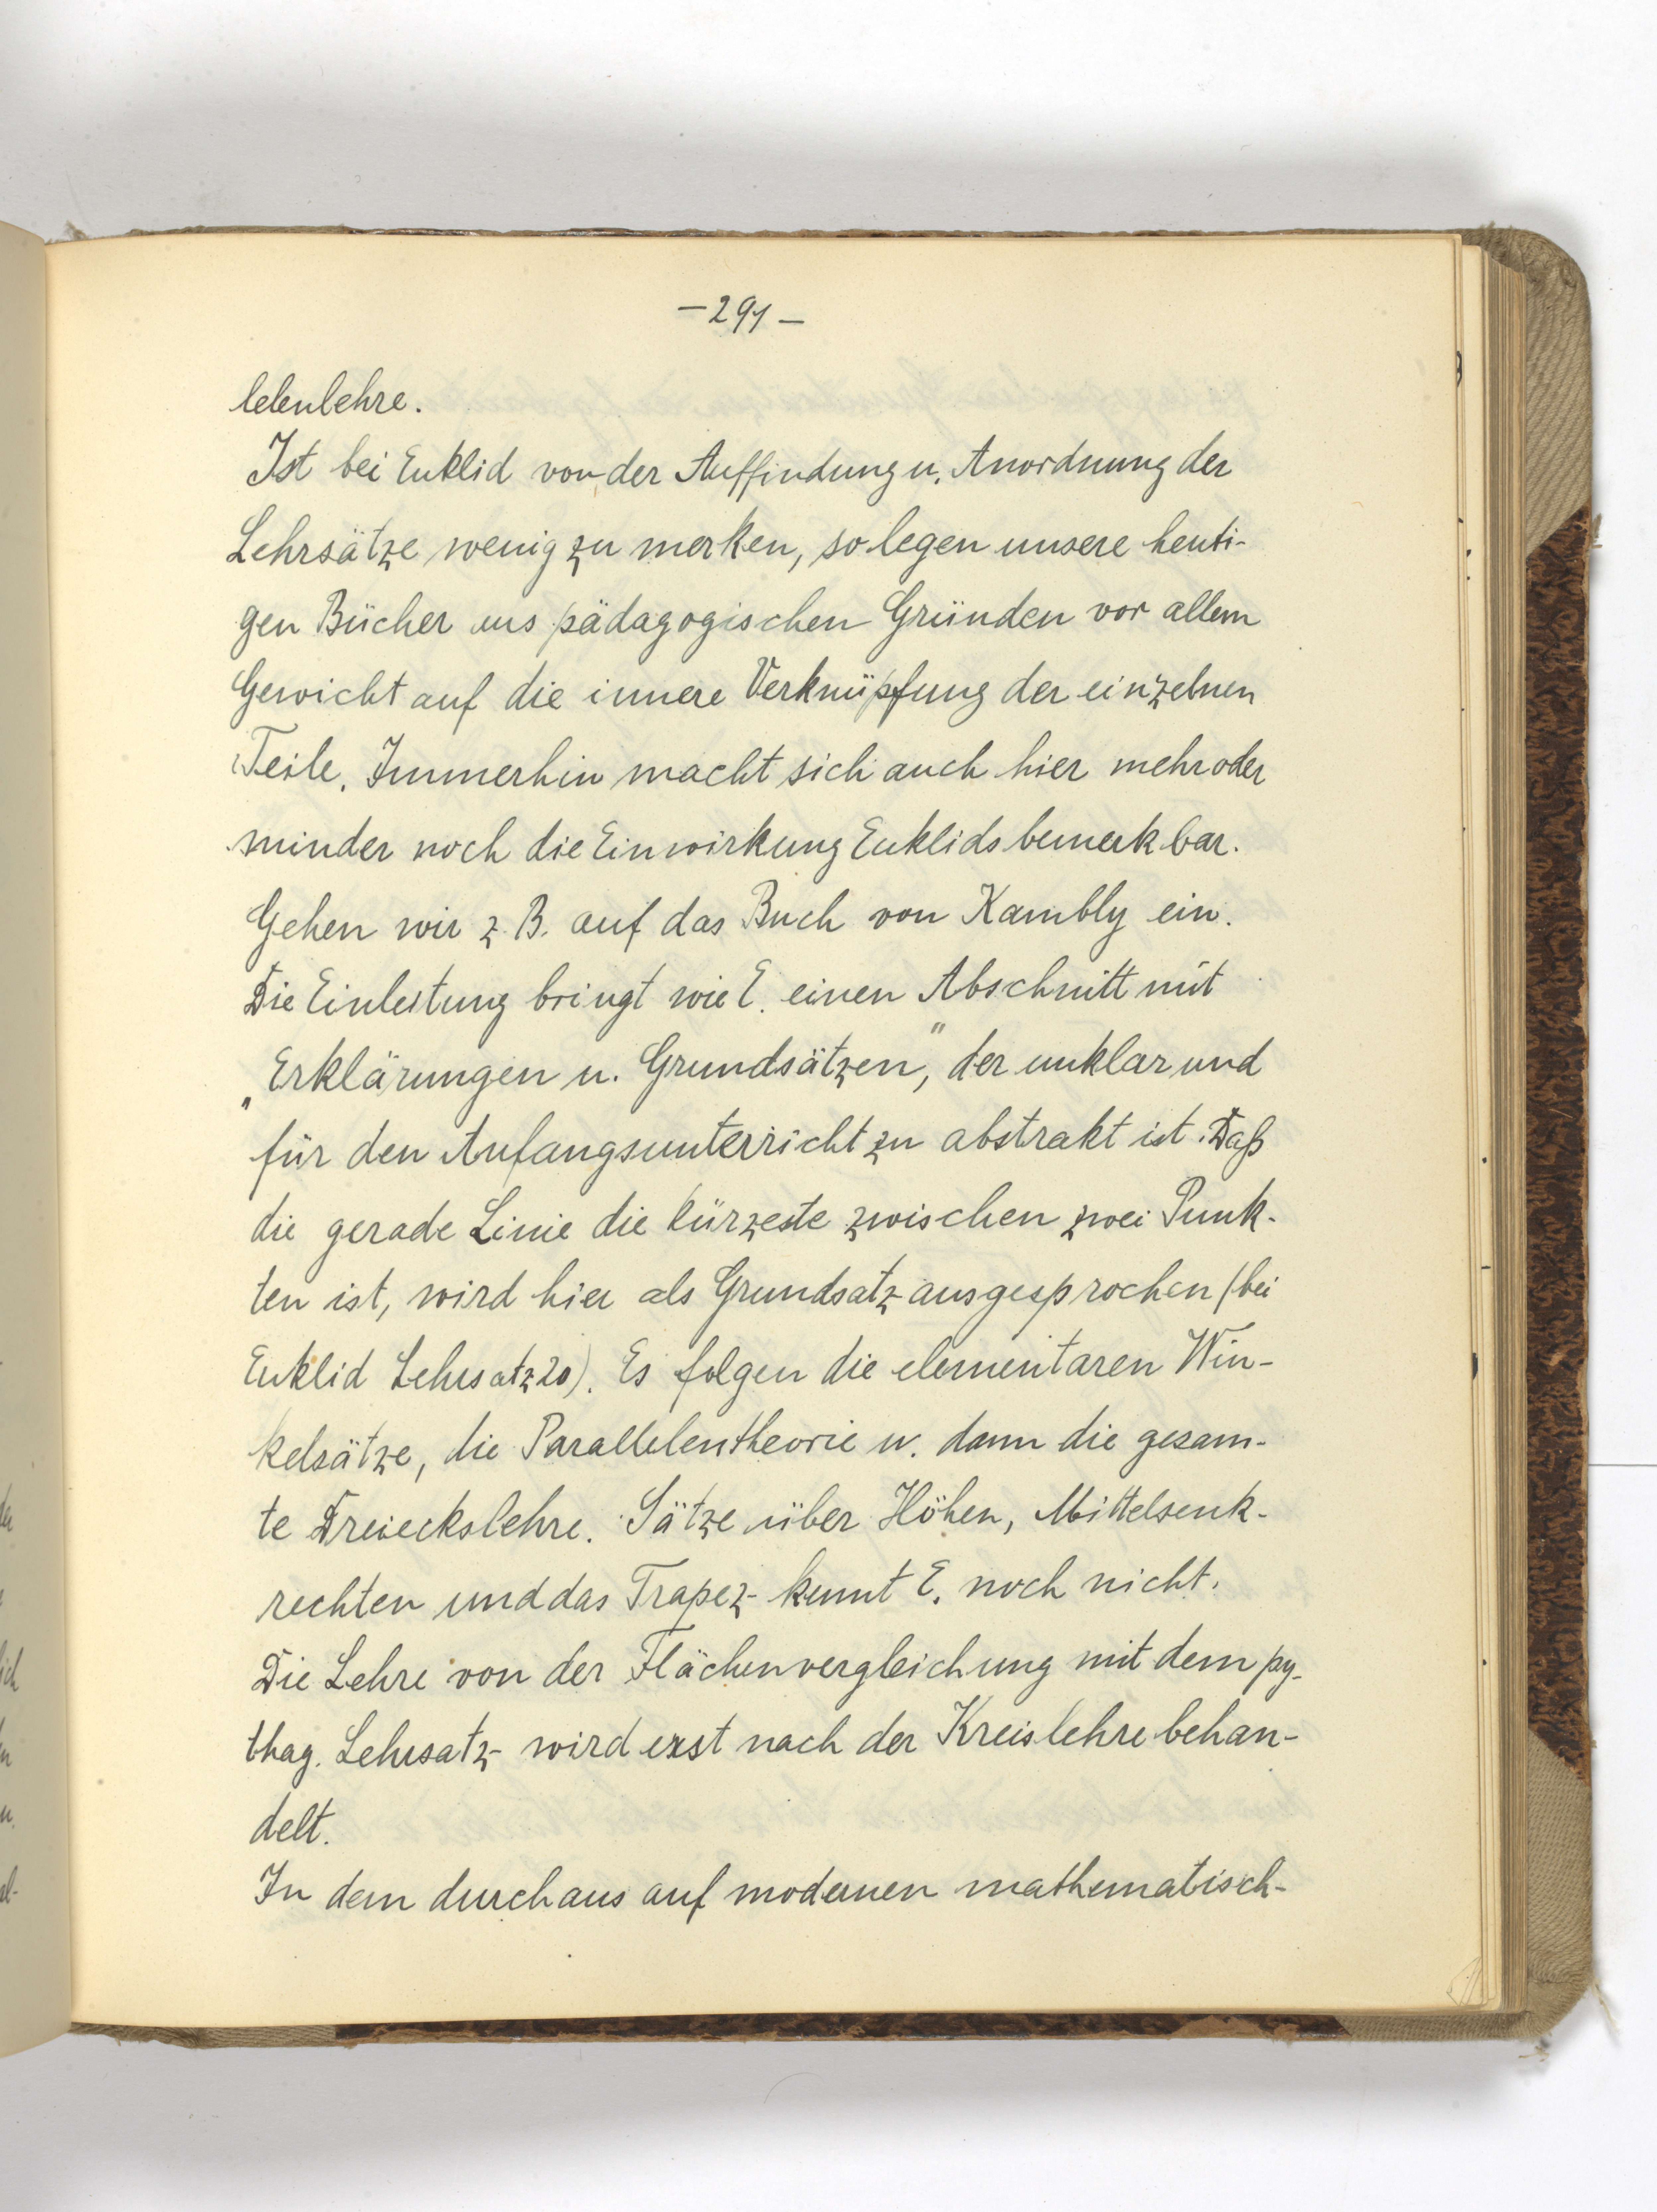 —291—
lelenlehre.
Ist bei Euklid von der Auffindung u. Anordnung der
Lehrsätze wenig zu merken, so legen unsere heuti-
gen Bücher aus pädagogischen Gründen vor allem
Gewicht auf die innere Verknüpfung der einzelnen
Teile. Immerhin macht sich auch hier mehr oder
minder noch die Einwirkung Euklids bemerkbar.
Gehen wir z. B. auf das Buch von Kambly ein.
Die Einleitung bringt wie E. einen Abschnitt mit
„Erklärungen u. Grundsätzen“, der unklar und
für den Anfangsunterricht zu abstrakt ist. Daß
die gerade Linie die kürzeste zwischen zwei Punk-
ten ist, wird hier als Grundsatz ausgesprochen (bei
Euklid Lehrsatz 20). Es folgen die elementaren Win-
kelsätze, die Parallelentheorie u. dann die gesam-
te Dreieckslehre. Sätze über Höhen, Mittelsenk-
rechten und das Trapez kennt E. noch nicht.
Die Lehre von der Flächenvergleichung mit dem py-
thag. Lehrsatz wird erst nach der Kreislehre behan-
delt.
In dem durchaus auf modernen mathematisch-